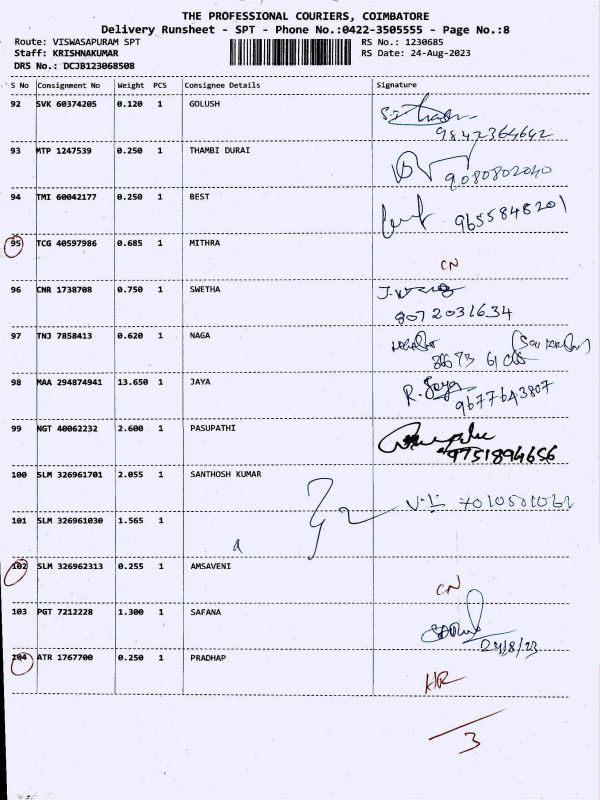 THE PROFESSIONAL COURIERS, COIMBATORE
Delivery Runsheet - SPT - Phone No.:0422-3505555 - Page No.:8
Route: VISWASAPURAM SPT RS No.: 1230685
Staff: KRISHNAKUMAR RS Date: 24-Aug-2023
DRS No.: DCJB123068508
S No Consignment No Weight PCS Consignee Details Signature
92 SVK 60374205 0.120 1 GOLUSH
9842364642
93 MTP 1247539 0.250 1 THAMBI DURAI
9080802040
94 TMI 60042177 0.250 1 BEST
9655848201
95 TCG 40597986 0.685 1 MITHRA
CN
96 CNR 1738708 0.750 1 SWETHA
8072031634
97 TNJ 7858413 0.620 1 NAGA
98 MAA 294874941 13.650 1 JAYA R. Jaya
9677643807
99 NGT 40062232 2.600 1 PASUPATHI
9751894656
100 SLM 326961701 2.055 1 SANTHOSH KUMAR
101 SLM 326961030 1.565 1
102 SLM 326962313 0.255 1 AMSAVENI
CN
103 PGT 7212228 1.300 1 SAFANA
24/8/23
104 ATR 1767700 0.250 1 PRADHAP
3